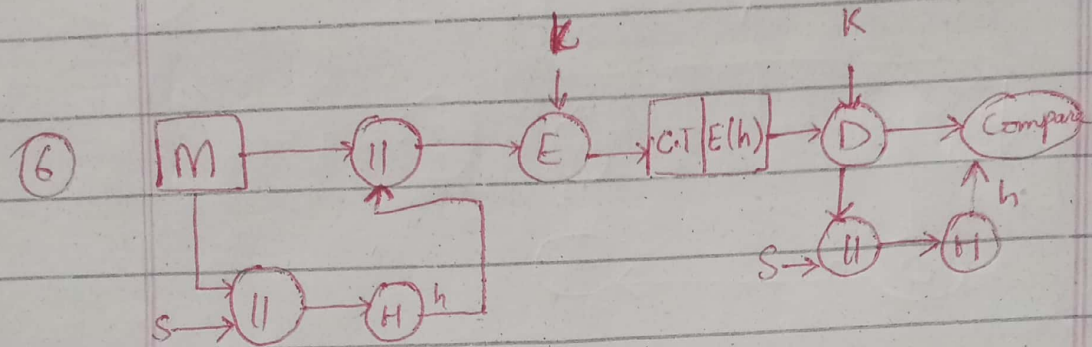 K K
6 M || E C.T E(h) D Compare
h
S || H h S || H